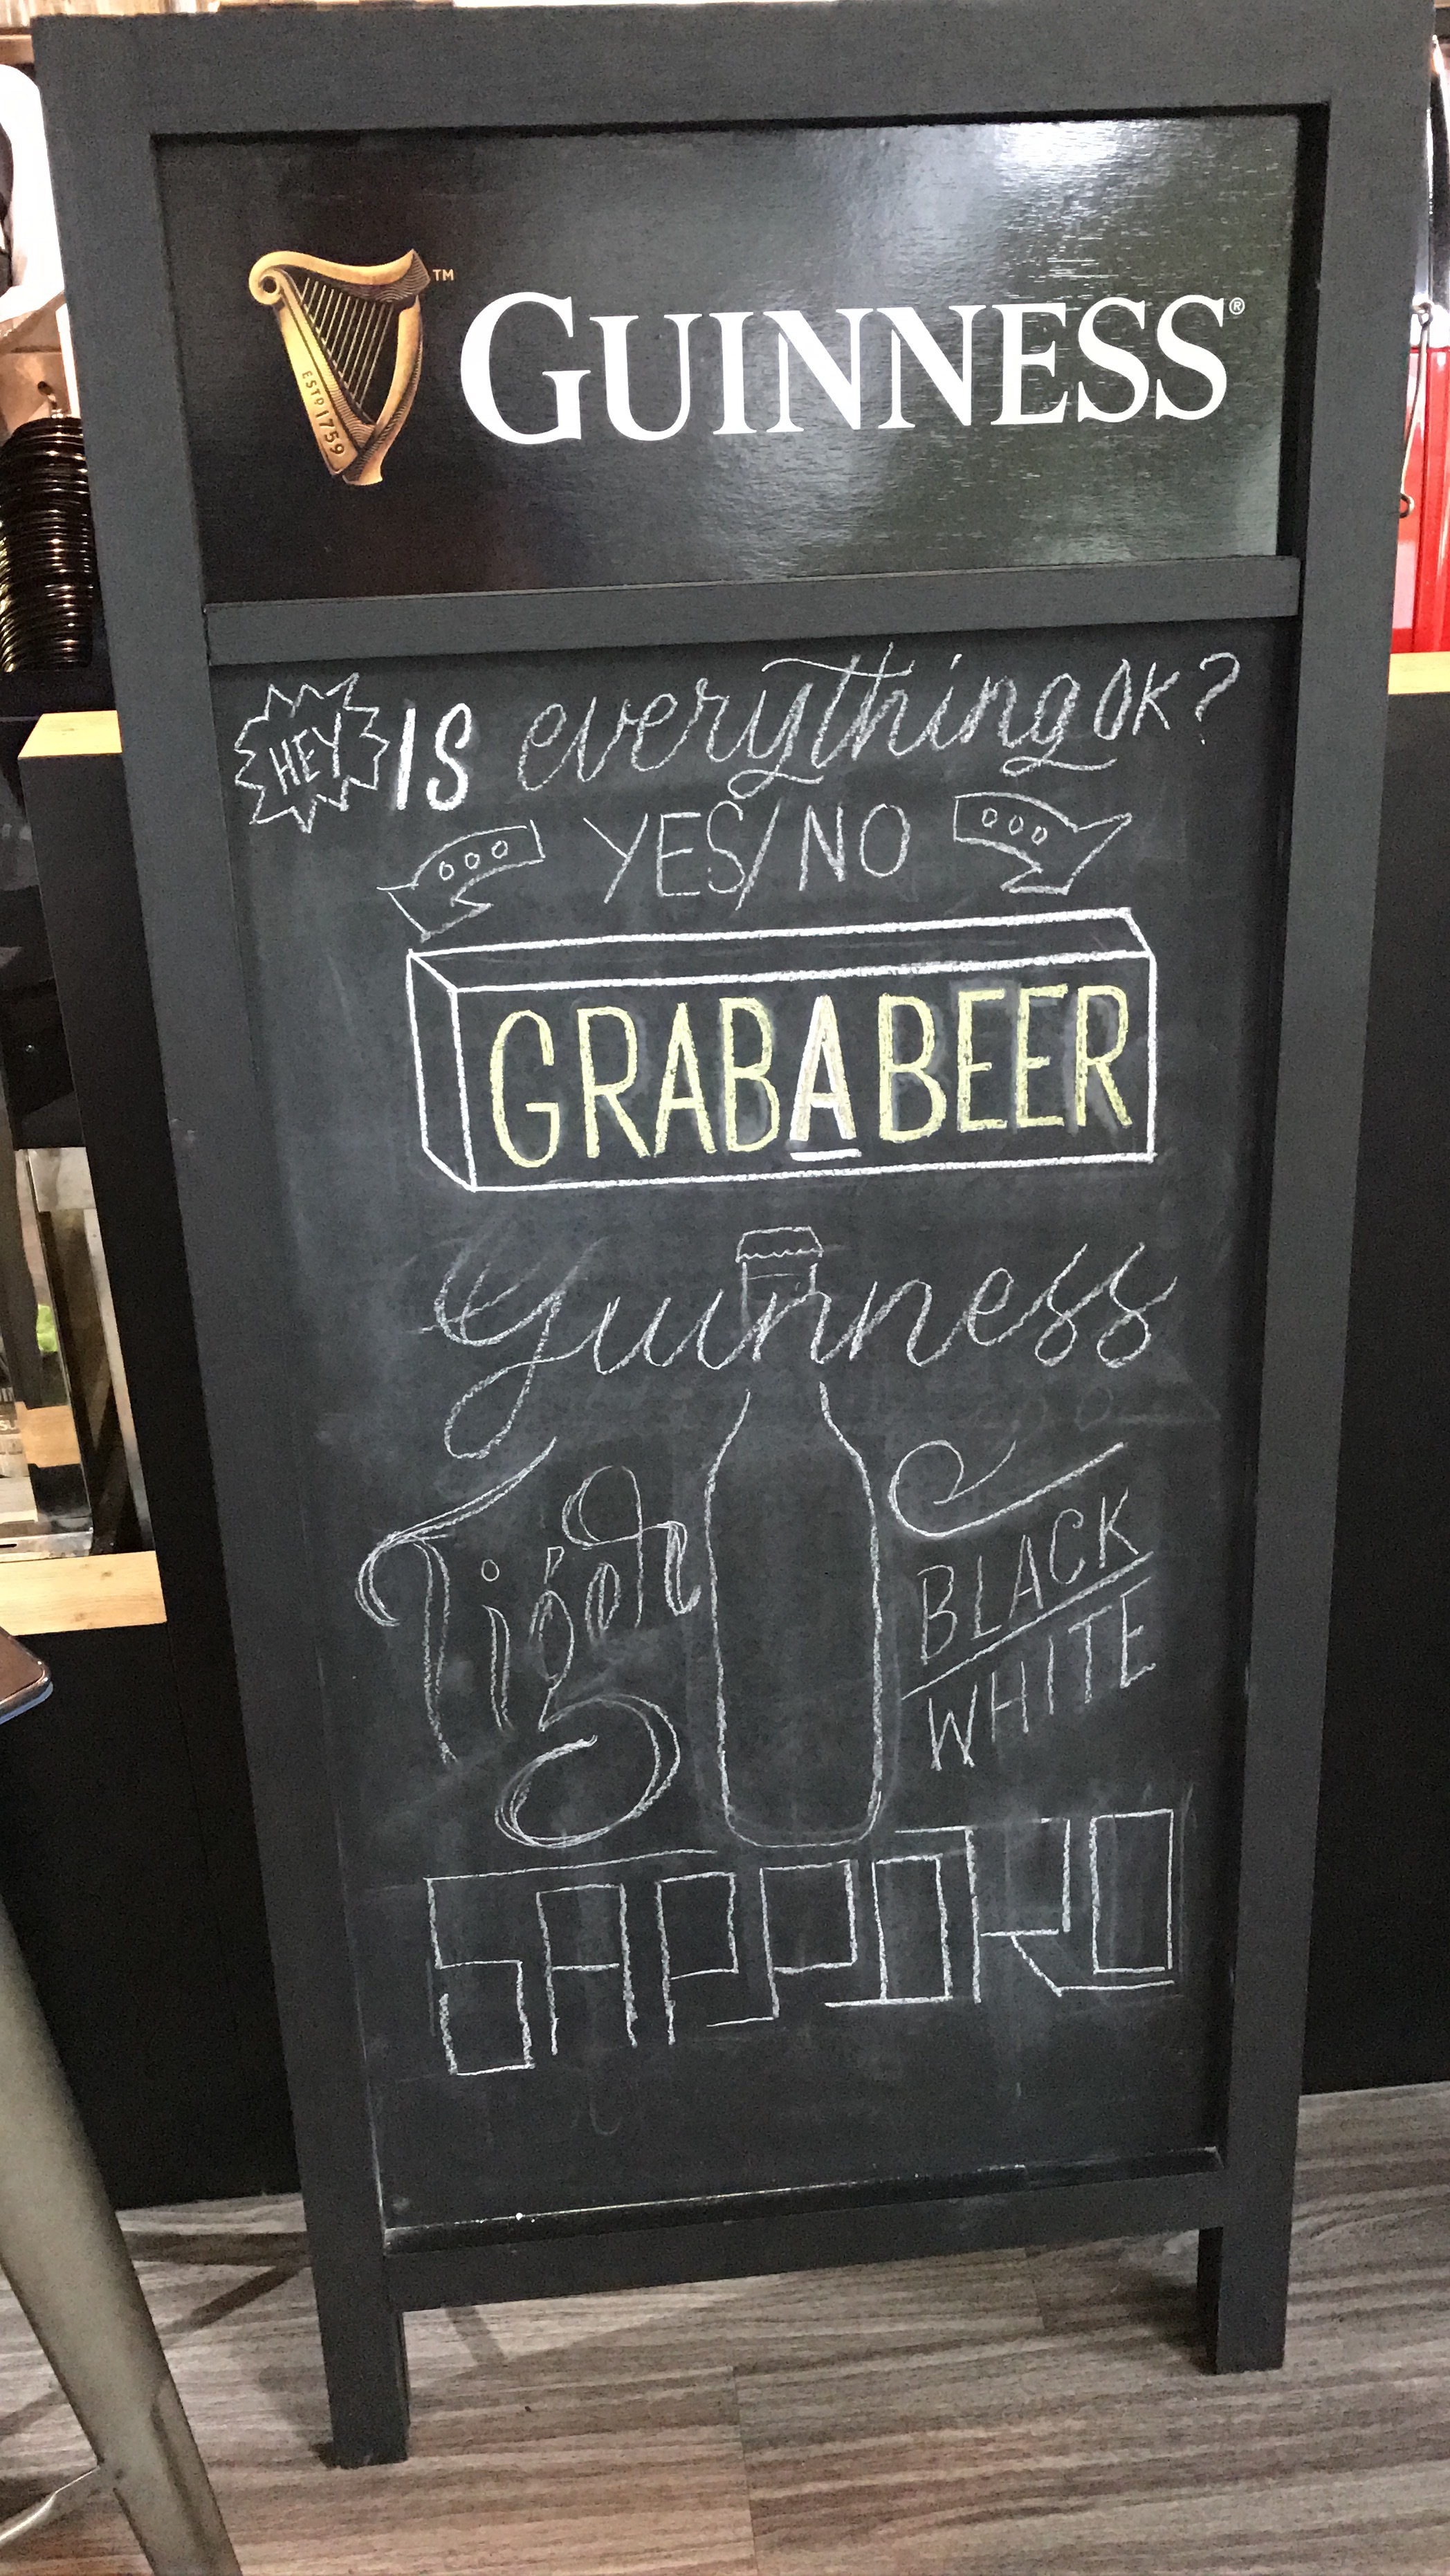 ESTD 1759
™
GUINNESS®
HEY IS everything OK?
YES/NO
GRAB A BEER
Guinness
Tiger
BLACK
WHITE
SAPPORO